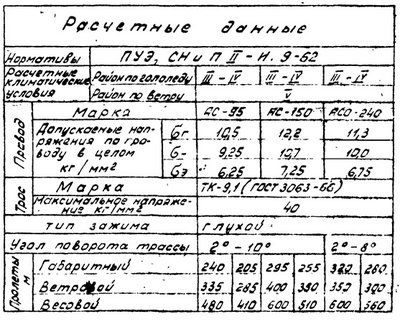 Расчетные данные
Нормативы ПУЭ, СН и П II-И. 9-62
Расчетные климатические условия
Район по гололеду III-IV III-IV III-IV
Район по ветру V
Провод
Марка АС-95 АС-150 АСО-240
Допускаемые напряжения по проводу в целом кг/мм²
бг 10,5 12,2 11,3
б- 9,25 10,7 10,0
бэ 6,25 7,25 6,75
Трос
Марка ТК-9,1 (ГОСТ 3063-66)
Максимальное напряжение кг/мм² 40
Тип зажима глухой
Угол поворота трассы 2°-10° 2°-8°
Пролеты м
Габаритный 240 205 295 255 320 280
Ветровой 335 285 400 380 350 300
Весовой 480 410 600 510 600 560